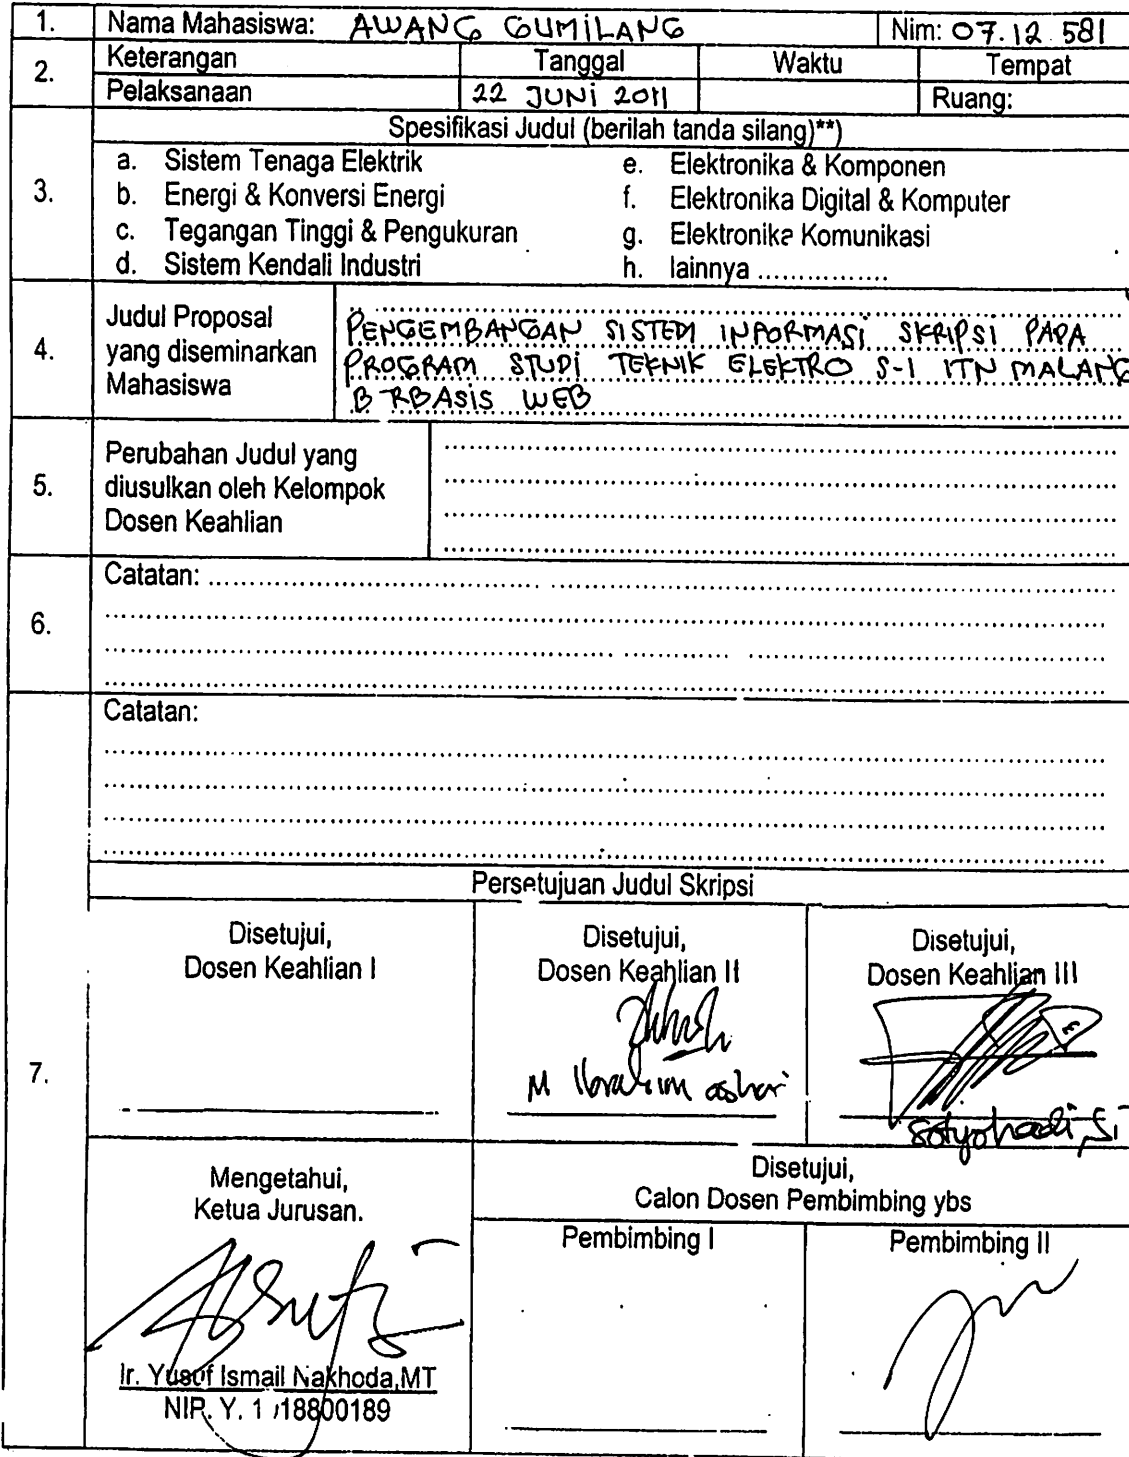 1. Nama Mahasiswa: AWANG GUMILANG Nim: 07.12.581
2. Keterangan Tanggal Waktu Tempat
Pelaksanaan 22 JUNI 2011 Ruang:
Spesifikasi Judul (berilah tanda silang)**)
3.
a. Sistem Tenaga Elektrik e. Elektronika & Komponen
b. Energi & Konversi Energi f. Elektronika Digital & Komputer
c. Tegangan Tinggi & Pengukuran g. Elektronika Komunikasi
d. Sistem Kendali Industri h. lainnya ................
4. Judul Proposal
yang diseminarkan
Mahasiswa
PENGEMBANGAN SISTEM INFORMASI SKRIPSI PADA
PROGRAM STUDI TEKNIK ELEKTRO S-1 ITN MALANG
B RBASIS WEB
5. Perubahan Judul yang
diusulkan oleh Kelompok
Dosen Keahlian
6. Catatan:
7. Catatan:
Persetujuan Judul Skripsi
Disetujui,
Dosen Keahlian I
Disetujui,
Dosen Keahlian II
M Ibrahim ashari
Disetujui,
Dosen Keahlian III
Sotyohadi, ST
Mengetahui,
Ketua Jurusan.
Ir. Yusuf Ismail Nakhoda,MT
NIP. Y. 1 18800189
Disetujui,
Calon Dosen Pembimbing ybs
Pembimbing I Pembimbing II